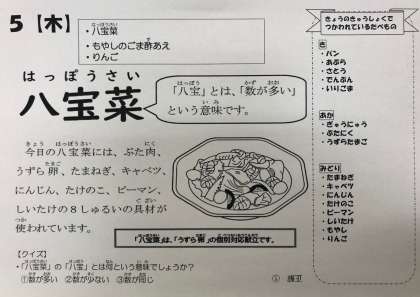 5【木】
・八宝菜
・もやしのごま酢あえ
・りんご
はっぽうさい
八宝菜
「八宝」とは、「数が多い」
という意味です。
今日の八宝菜には、ぶた肉、
うずら卵、たまねぎ、キャベツ、
にんじん、たけのこ、ピーマン、
しいたけの8しゅるいの具材が
使われています。
「八宝菜」は、「うずら卵」の個別対応献立です。
【クイズ】
・「八宝菜」の「八宝」とは何という意味でしょうか？
①数が多い ②数が少ない ③数が同じ
きょうのきゅうしょくで
つかわれているたべもの
き
・パン
・あぶら
・さとう
・でんぷん
・いりごま
あか
・ぎゅうにゅう
・ぶたにく
・うずらたまご
みどり
・たまねぎ
・キャベツ
・にんじん
・たけのこ
・ピーマン
・しいたけ
・もやし
・りんご